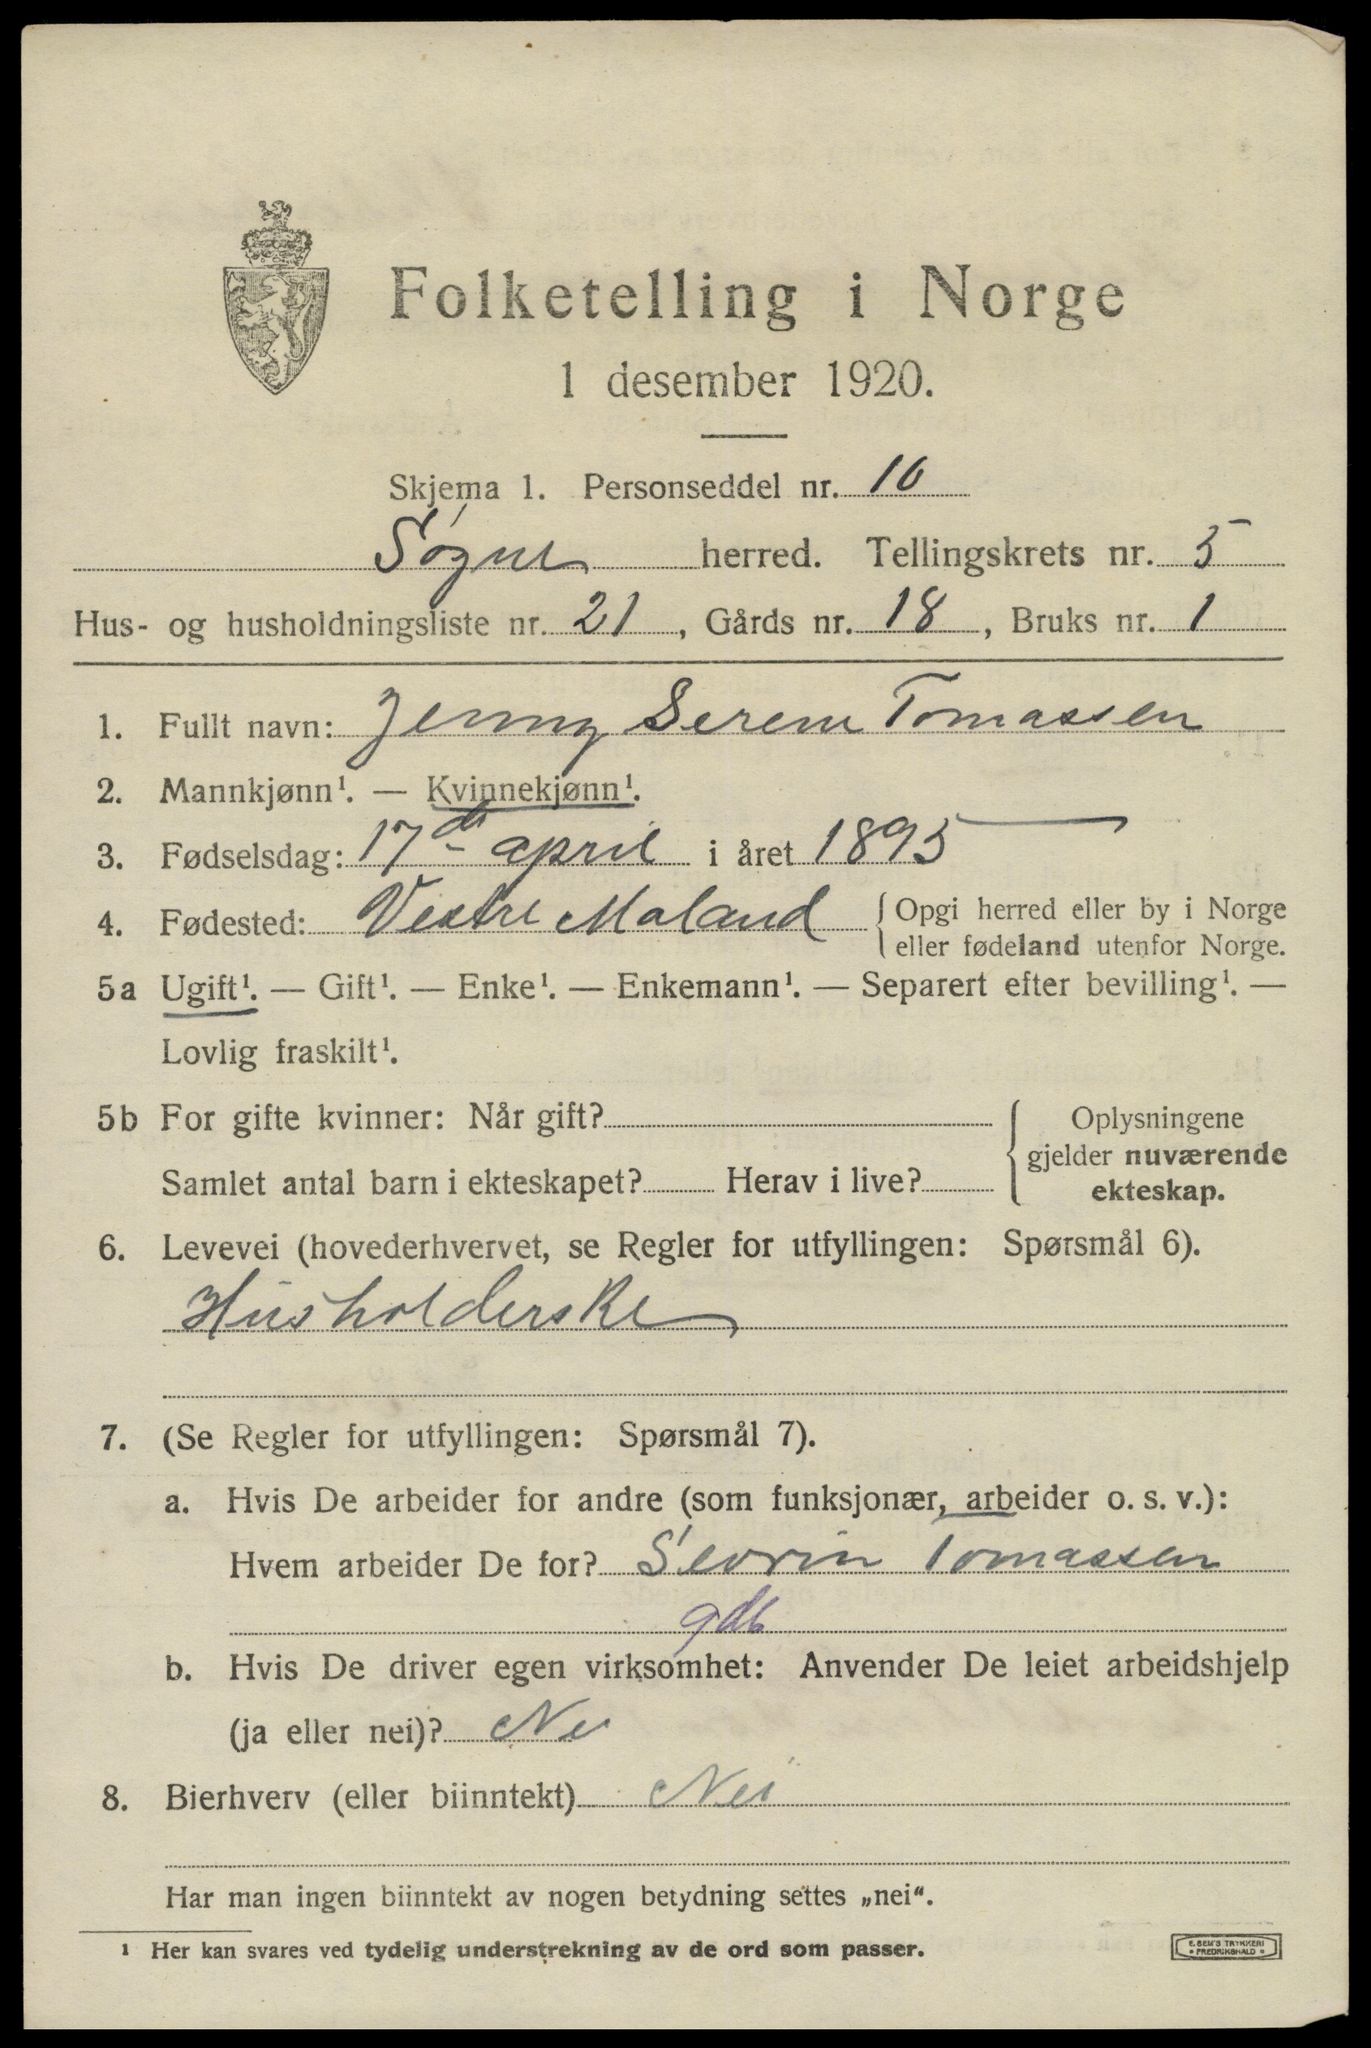 Folketelling i Norge
1 desember 1920.
Skjema 1. Personseddel nr. 10
Søgne herred. Tellingskrets nr. 5
Hus- og husholdningsliste nr. 21, Gårds nr. 18, Bruks nr. 1
1. Fullt navn: Jenny Serene Tomassen
2. Mannkjønn¹. — Kvinnekjønn¹.
3. Fødselsdag: 17de april i året 1895
4. Fødested: Vestre Moland {Opgi herred eller by i Norge
eller fødeland utenfor Norge.
5a Ugift¹. — Gift¹. — Enke¹. — Enkemann¹. — Separert efter bevilling¹. —
Lovlig fraskilt¹.
5b For gifte kvinner: Når gift? Oplysningene
gjelder nuværende
Samlet antal barn i ekteskapet? Herav i live? ekteskap.
6. Levevei (hovederhvervet, se Regler for utfyllingen: Spørsmål 6).
Husholderske
7. (Se Regler for utfyllingen: Spørsmål 7).
a. Hvis De arbeider for andre (som funksjonær, arbeider o. s. v.):
Hvem arbeider De for? Sevrin Tomassen
gdb
b. Hvis De driver egen virksomhet: Anvender De leiet arbeidshjelp
(ja eller nei)? Nei
8. Bierhverv (eller biinntekt) Nei
Har man ingen biinntekt av nogen betydning settes „nei“.
¹ Her kan svares ved tydelig understrekning av de ord som passer.
E. SEM'S TRYKKERI
• FREDRIKSHALD •